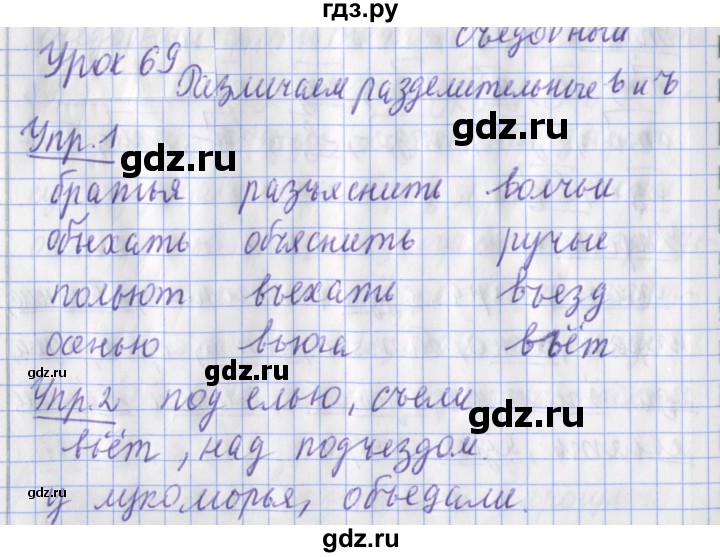 гдз.ру
съедобный
Урок 69
Различаем разделительные ь и ъ
Упр.1
gdz.ru
gdz.ru
братья разъяснить волчьи
объехать объяснить ручьие
gdz.ru
gdz.ru
польют въехать въезд
осенью вьюга вьёт
gdz.ru
gdz.ru
Упр.2 под елью, съели
вьёт, над подъездом.
gdz.ru
gdz.ru
у лукоморья, объедали.
gdz.ru